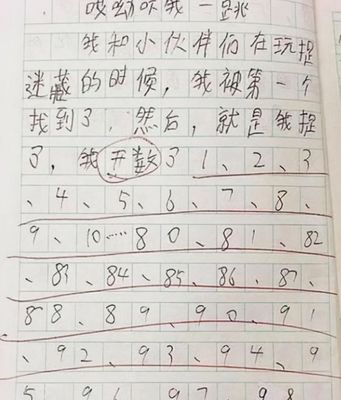 哎呦吓我一跳
我和小伙伴们在玩捉
迷藏的时候，我被第一个
找到了，然后，就是我捉
了，我开数了1、2、3
、4、5、6、7、8、
9、10……80、81、82
、83、84、85、86、87、
88、89、90、91
、92、93、94、9
5、96、97、98